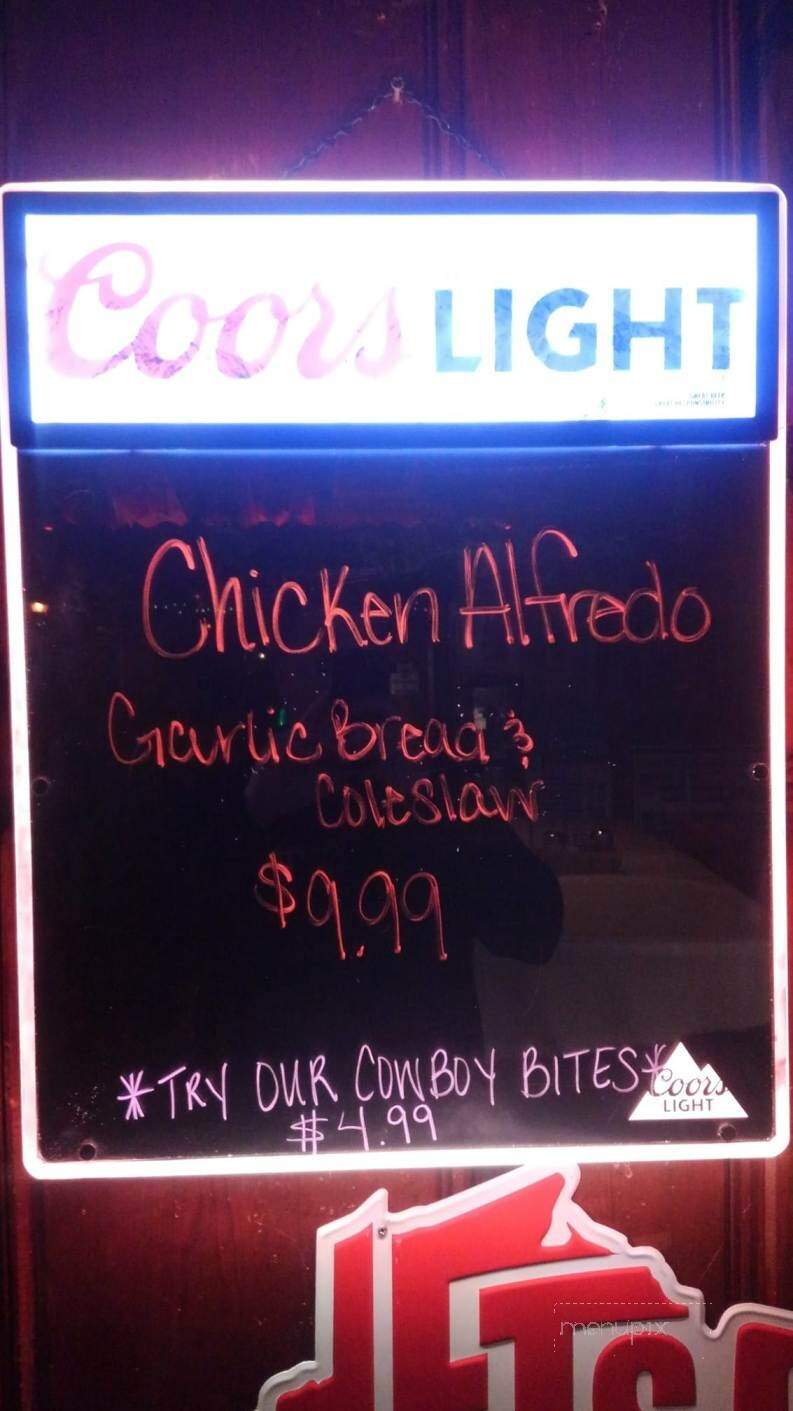 Coors LIGHT
GREAT BEER
GREAT RESPONSIBILITY
Chicken Alfredo
Garlic Bread &
Coleslaw
$9.99
*TRY OUR COWBOY BITES*
$4.99
Coors
LIGHT
menupix